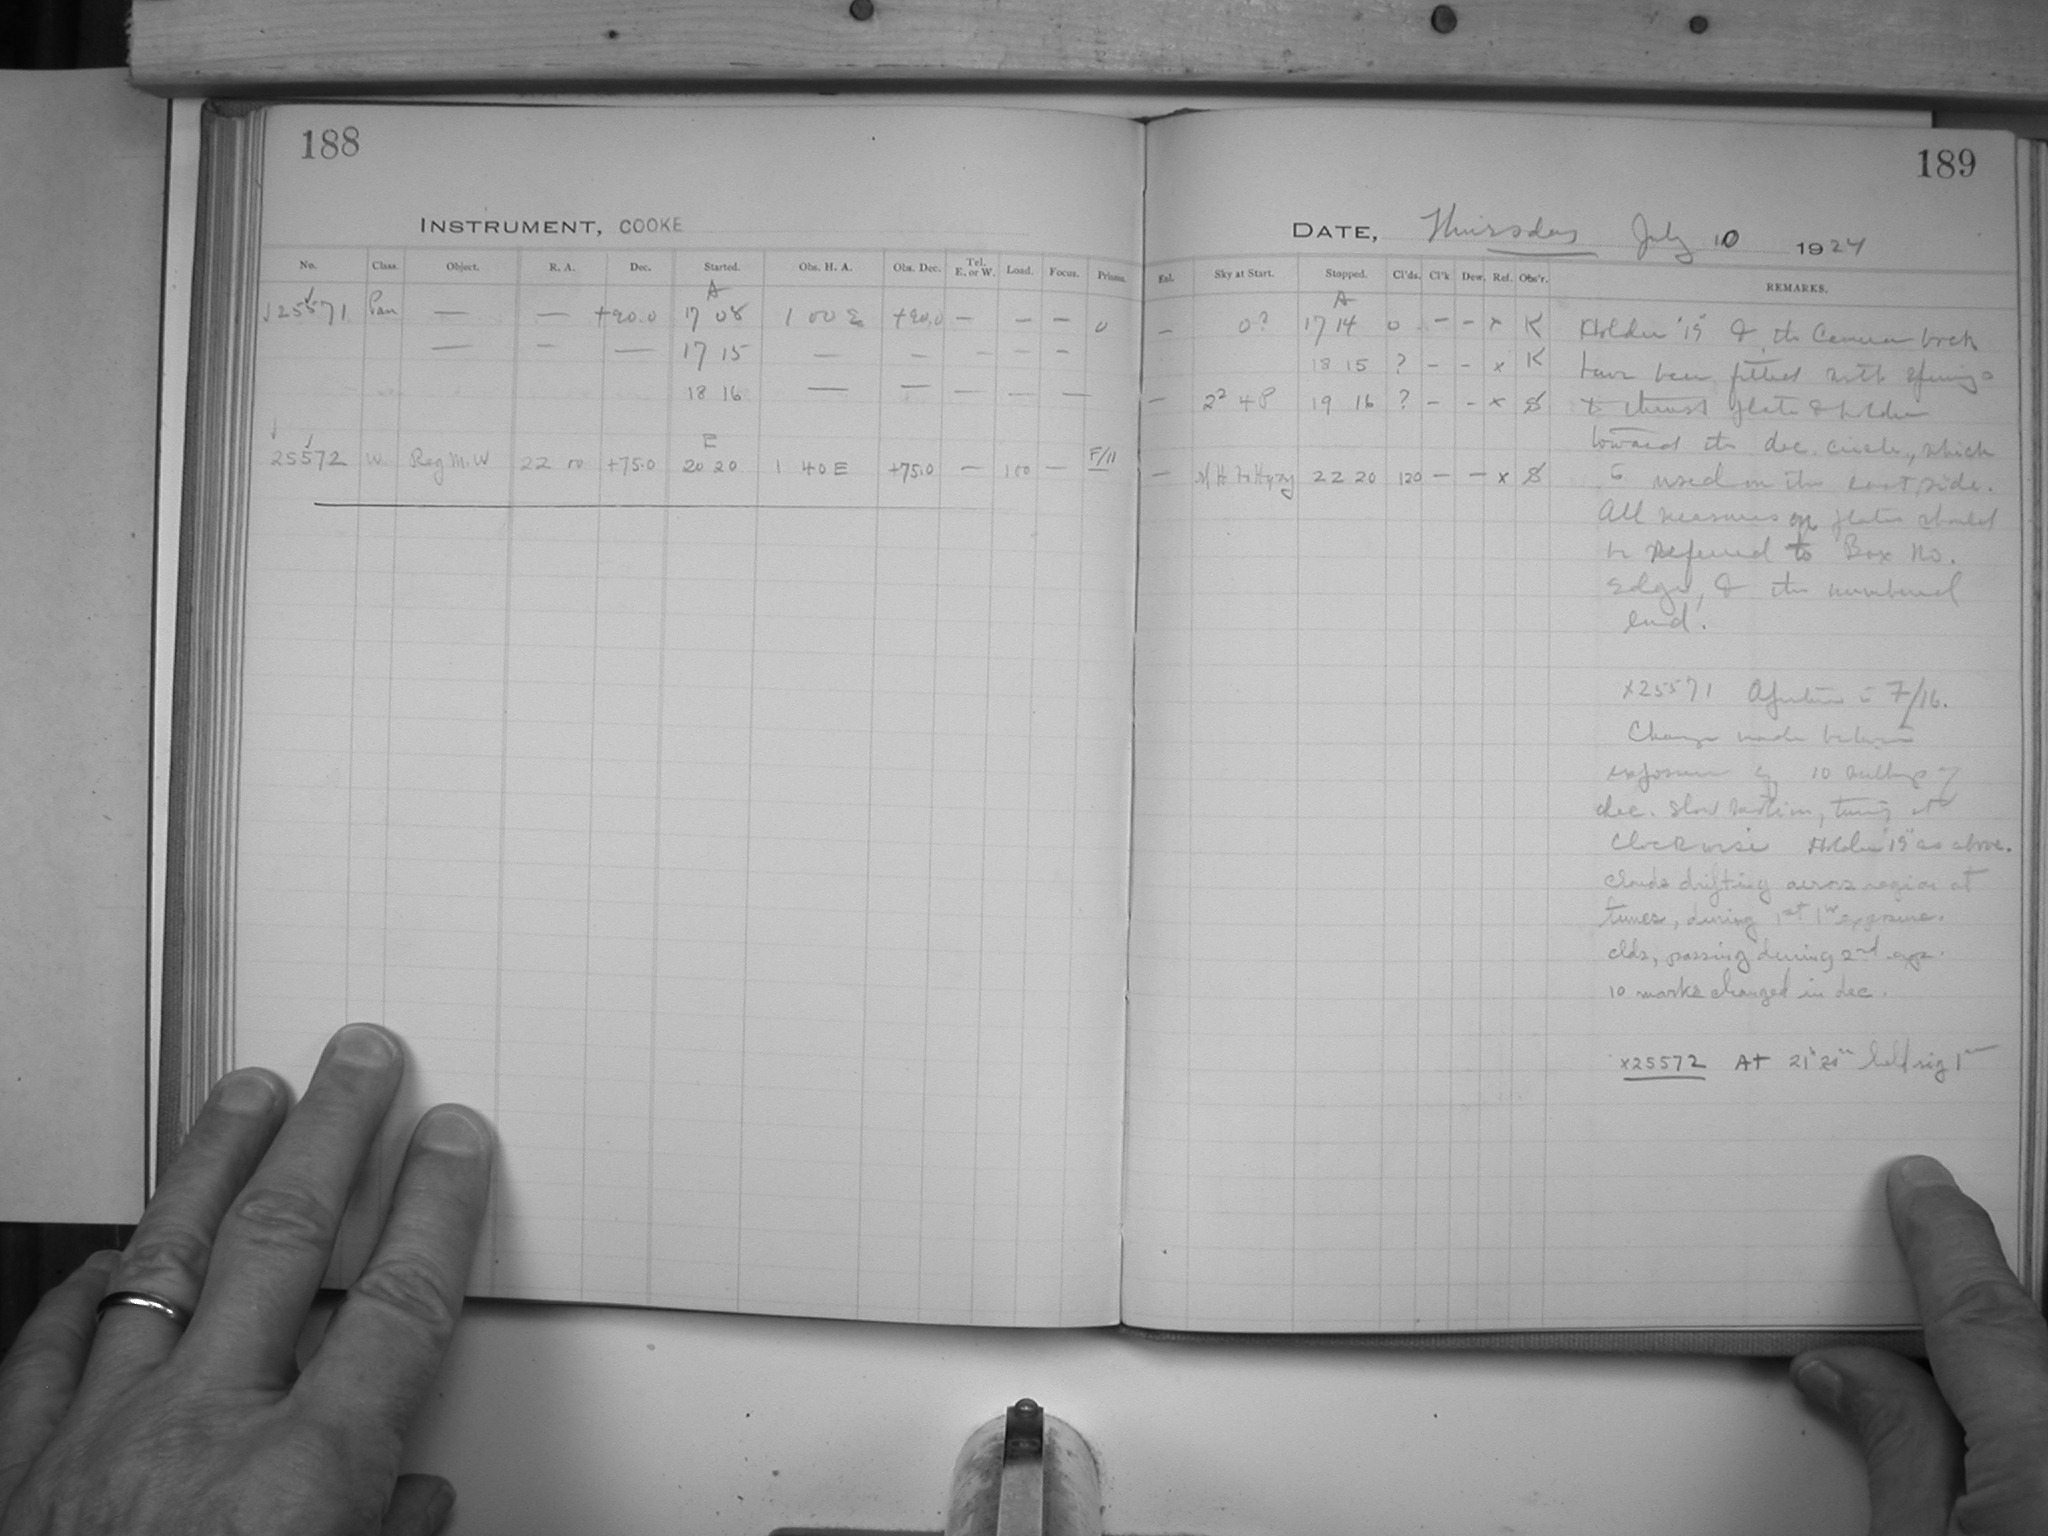 188
INSTRUMENT, COOKE
No. Class. Object. R. A. Dec. Started. Obs. H. A. Obs. Dec. Tel. E. or W. Load. Focus. Prisms.
A
↓25571 Pan — — +90.0 17 08 1 00 E +90.0 — — — 0
— — — 17 15 — — — — —
18 16 — — — — —
E
25572 W. Reg M.W 22 00 +75.0 20 20 1 40 E +75.0 — 100 — F/11
189
DATE, Thursday July 10 1924
Enl. Sky at Start. Stopped. Cl'ds. Cl'k Dew. Ref. Obs'r. REMARKS.
A
— 0? 17 14 0 — — x K
18 15 ? — — x K
— 2² 4P 19 16 ? — — x S
— 22 20 120 — — x S
Holder "19" & the Camera back
have been fitted with springs
to thrust plate & holder
toward the dec. circle, which
is used on the east side.
All measures on plates should
be referred to Box No.
edge, & the numbered
end.
x25571 Aperture = F/16.
Change made between
exposures of 10
dec. slow motion, turning it
clockwise Holder "19" as above.
clouds drifting across region at
times, during 1st 1ʰ exposure.
clds, passing during 2nd exp.
10 marks changed in dec.
x25572 At 21ʰ20ᵐ held rig 1ᵐ